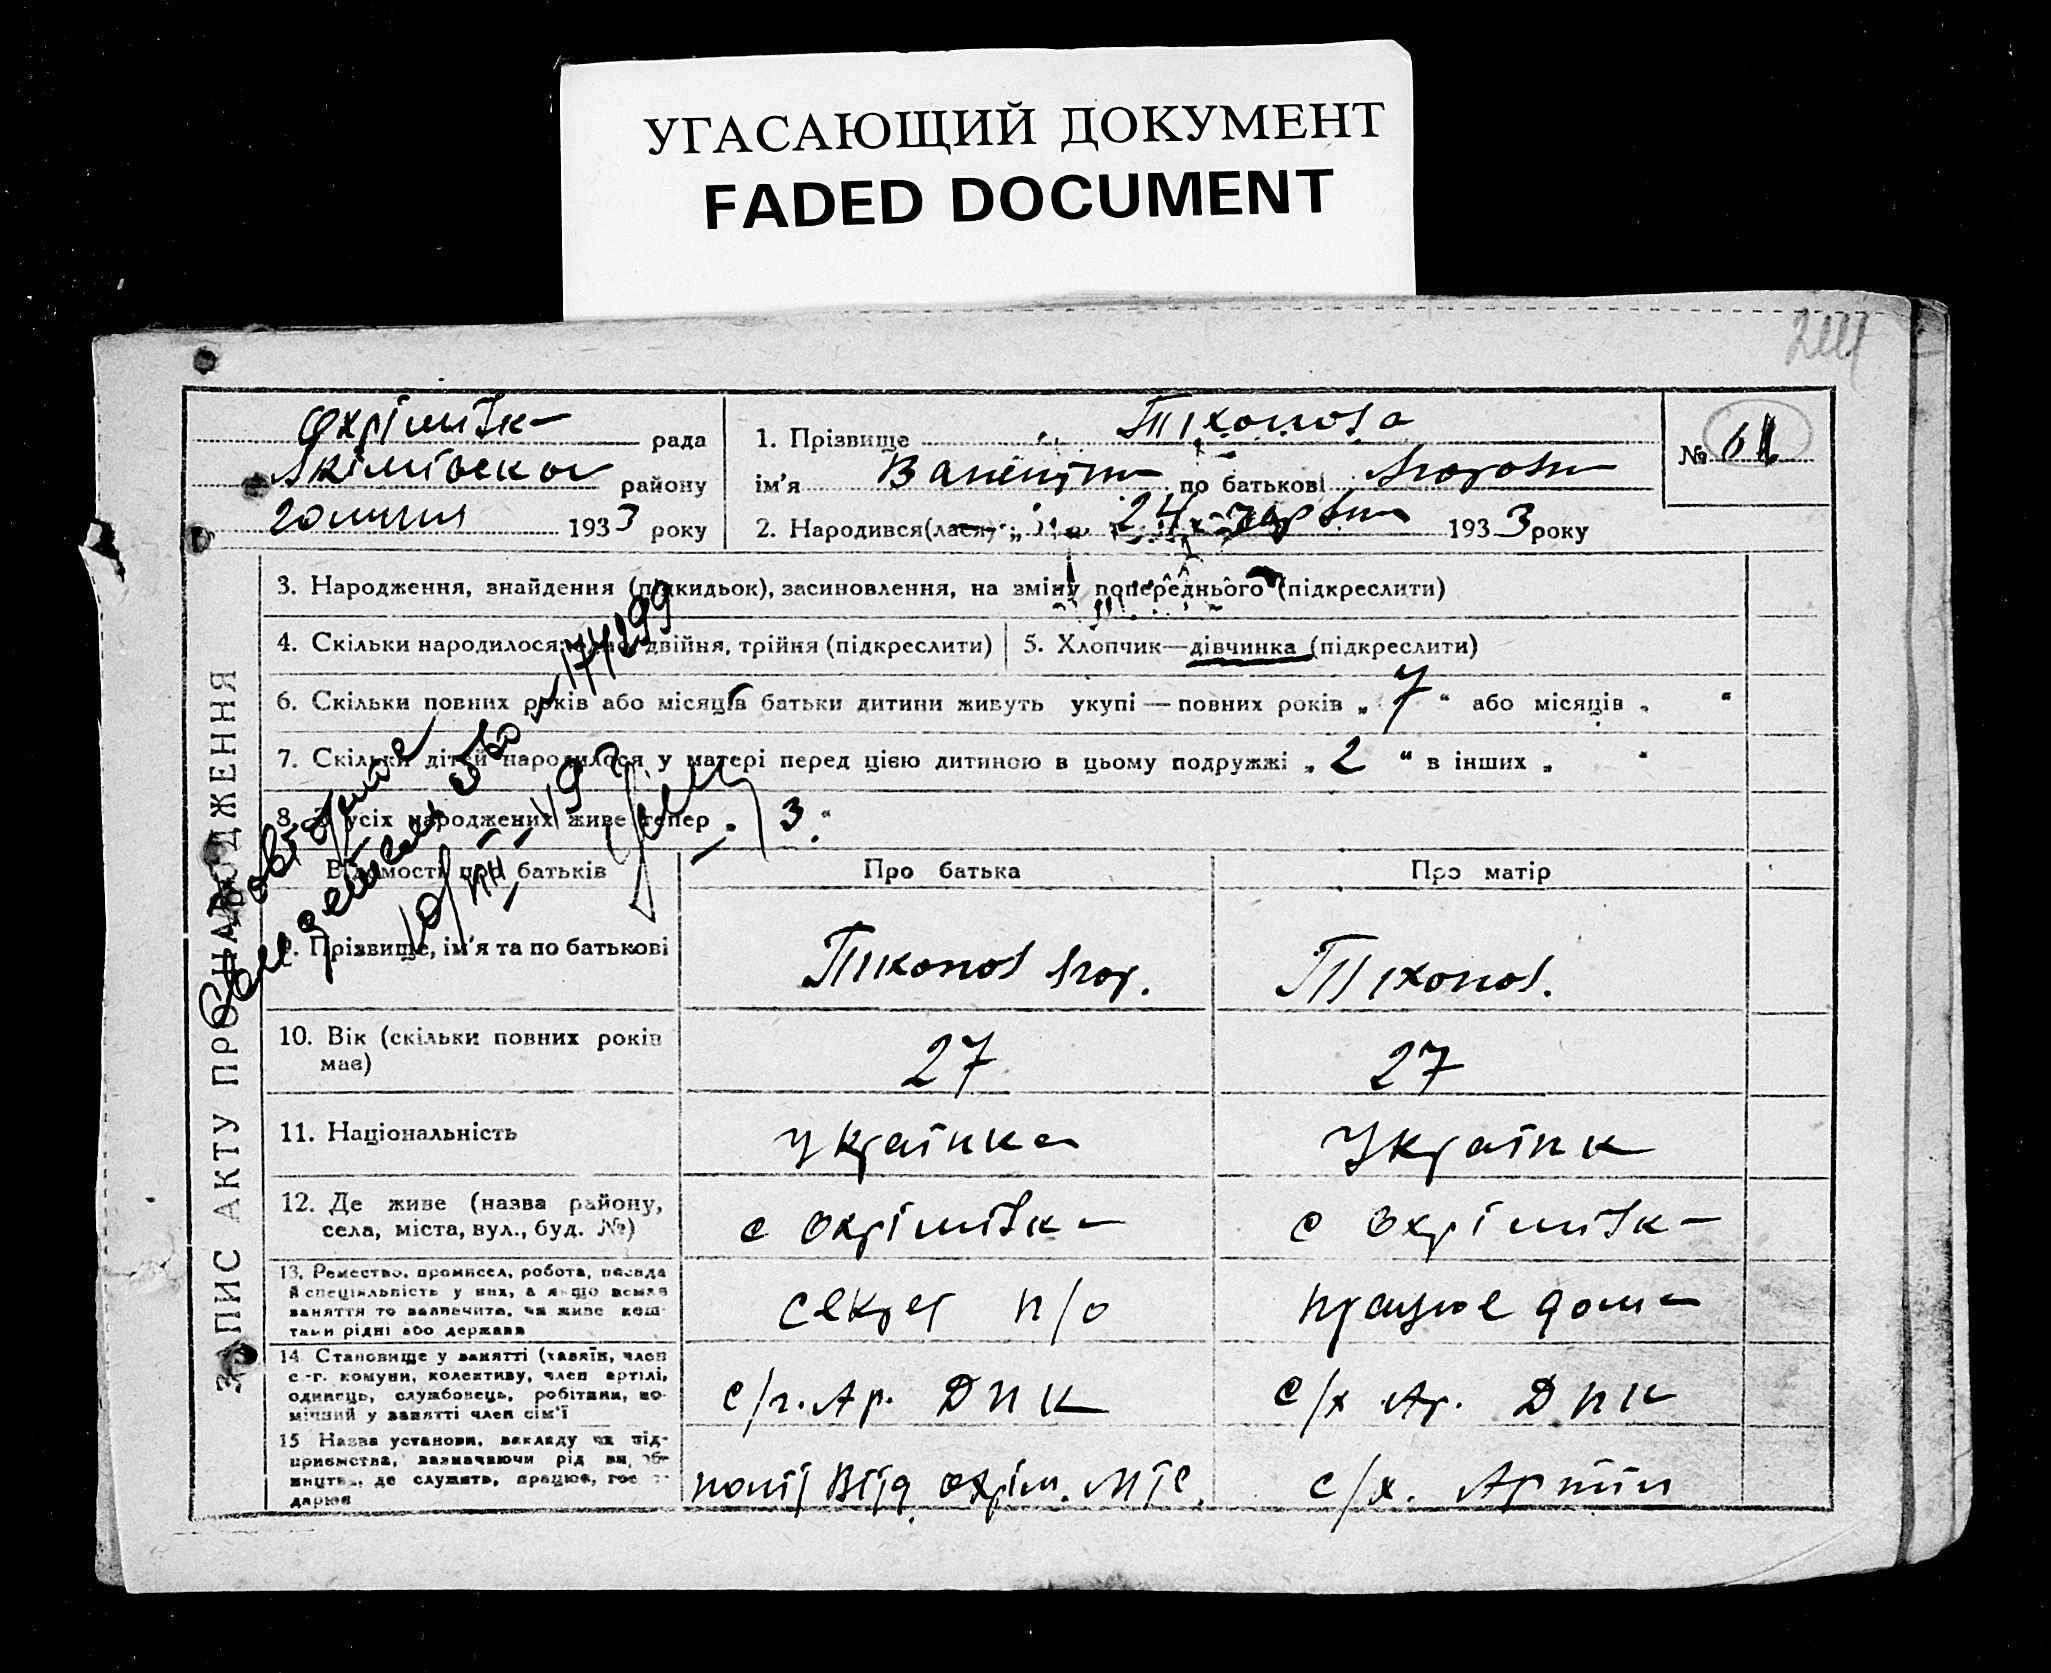 УГАСАЮЩИЙ ДОКУМЕНТ
FADED DOCUMENT
Охрімівка рада
Якімівськом району
20 липня 1933 року
1. Прізвище Тіхонова
ім’я Валентіна по батькові
2. Народився(лася) „ 24 червня 1933 року
№ 61
ЗАПИС АКТУ ПРО НАРОДЖЕННЯ
3. Народження, знайдення (підкидьок), засиновлення, на зміну попереднього (підкреслити)
4. Скільки народилося: двійня, трійня (підкреслити)
5. Хлопчик—дівчинка (підкреслити)
6. Скільки повних років або місяців батьки дитини живуть укупі — повних років „ 7 “ або місяців „ “
7. Скільки дітей народилося у матері перед цією дитиною в цьому подружжі „ 2 “ в інших „ “
8. З усіх народжених живе тепер „ 3 “
174299
Відомості про батьків
Про батька
Про матір
9. Прізвище, ім’я та по батькові
Тіхонов
Тіхонов.
10. Вік (скільки повних років має)
27
27
11. Національність
Українка
Українк
12. Де живе (назва району, села, міста, вул., буд. №)
с Охрімівка
с Охрімівка
13. Ремество, промисел, робота, посада й спеціяльність у них, а якщо немає заняття то зазначити, чи живе коштами рідні або держави
секрет п/о
працює дома
14. Становище у занятті (хазяїн, член с.-г. комуни, колективу, член артілі, одинець, службовець, робітник, помічний у занятті член сім’ї
с/г. Ар. ДПК
с/х Ар. ДПК
15. Назва установи, закладу чи підприємства, зазначаючи рід виробництва, де служить, працює, господарює
політ Відд Охрім. МТС.
с/х. Артіл